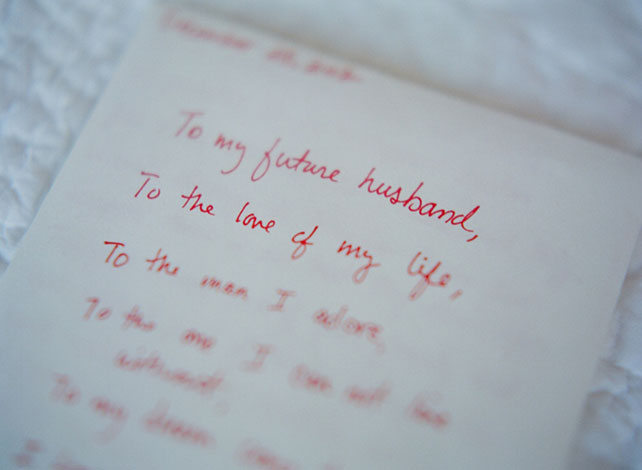 To my future husband,
To the love of my life,
To the man I adore,
To the one I can not live
without,
To my dream come
I